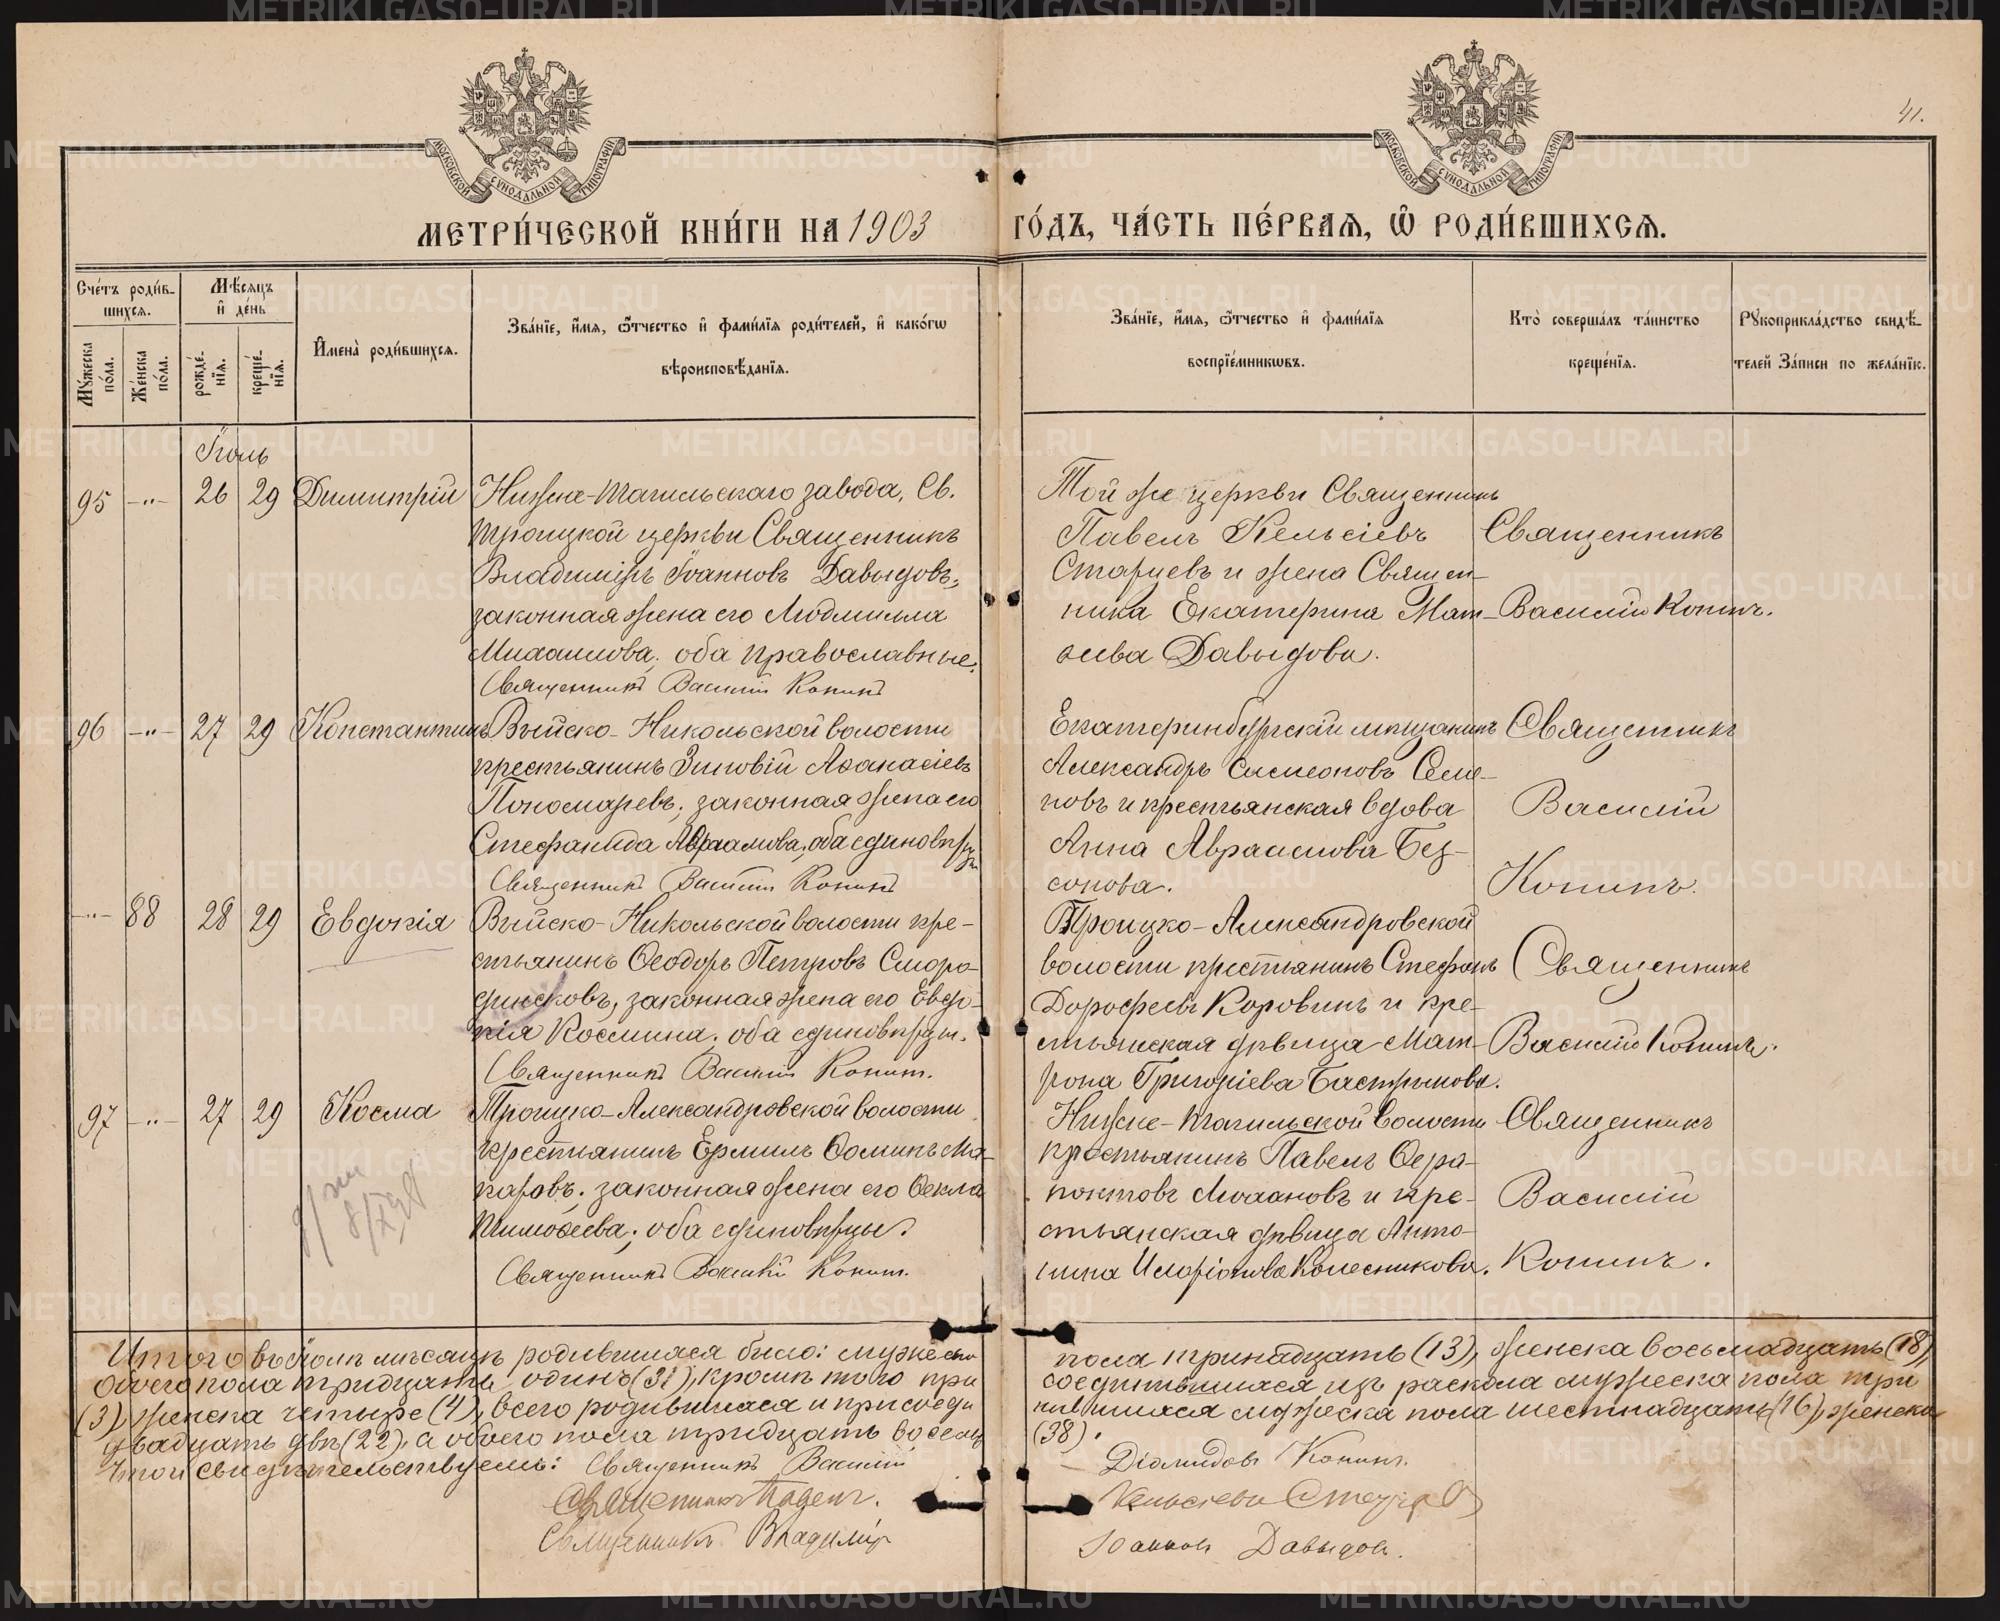 41.
МЕТРИ́ЧЕСКОЙ КНИ́ГИ НА 1903 ГО́ДЪ, ЧА́СТЬ ПЕ́РВАЯ, Ѡ҆ РОДИ́ВШИХСЯ.
Сче́тъ роди́в-
шихся.
Мѣ́сяцъ
и҆ де́нь
Мꙋ́жеска по́ла.
Же́нска по́ла.
рожде́-
нїя.
креще́-
нїя.
И҆мена̀ роди́вшихся.
Зва́нїе, и҆́мя, ѻ҆́тчество и҆ фами́лїя роди́телей, и҆ како́гѡ
вѣроисповѣ́данїя.
Зва́нїе, и҆́мя, ѻ҆́тчество и҆ фами́лїя
воспрїе́мникѡвъ.
Кто̀ соверша́лъ та́инство
креще́нїя.
Рꙋкоприкла́дство свидѣ́-
телей за́писи по жела́нїю.
Іюль
95 -"- 26 29 Димитрій
Нижне-Тагильскаго завода, Св.
Троицкой церкви Священникъ
Владиміръ Іоанновъ Давыдовъ,
законная жена его Людмилла
Михаилова; оба православные.
Священникъ Василій Конинъ
Той же церкви Священникъ
Павелъ Кельсіевъ
Старцевъ и жена Священ-
ника Екатерина Мат-
ѳиева Давыдова.
Священникъ
Василій Конинъ.
96 -"- 27 29 Константинъ
Выйско-Никольской волости
крестьянинъ Зиновій Аѳанасіевъ
Пономаревъ; законная жена его
Стефанида Авраамова; оба единовѣрцы
Священникъ Василій Конинъ
Екатеринбургскій мѣщанинъ
Александръ Симеоновъ Семе-
новъ и крестьянская вдова
Анна Авраамова Без-
сонова.
Священникъ
Василій
Конинъ.
-"- 88 28 29 Евдокія
Выйско-Никольской волости кре-
стьянинъ Ѳеодоръ Петровъ Сморо-
динсковъ, законная жена его Евдо-
кія Космина; оба единовѣрцы.
Священникъ Василій Конинъ.
Троицко-Александровской
волости крестьянинъ Стефанъ
Дорофеевъ Коровинъ и кре-
стьянская дѣвица Мат-
рона Григоріева Бастрыкова.
Священникъ
Василій Конинъ.
97 -"- 27 29 Косма
Троицко-Александровской волости
крестьянинъ Ермилъ Ѳоминъ Ма-
каровъ; законная жена его Ѳекла
Тимоѳеева; оба единовѣрцы.
Священникъ Василій Конинъ.
Нижне-Тагильской волости
крестьянинъ Павелъ Ѳера-
понтовъ Молвановъ и кре-
стьянская дѣвица Анто-
нина Иларіонова Колесникова.
Священникъ
Василій
Конинъ.
Итого въ Іюлѣ мѣсяцѣ родившихся было: мужеска пола тринадцать (13), женска восьмнадцать (18),
обоего пола тридцать одинъ (31), кромѣ того при соединившихся изъ раскола мужеска пола три
(3), женска четыре (4), всего родившихся и присоеди нившихся мужеска пола шестнадцать (16), женска
двадцать двѣ (22), а обоего пола тридцать восемь (38).
Въ томъ свидѣтельствуемъ: Священникъ Василій Діомидовъ Конинъ.
Священникъ Павелъ Кельсіевъ Старцевъ
Священникъ Владиміръ Іоанновъ Давыдовъ.